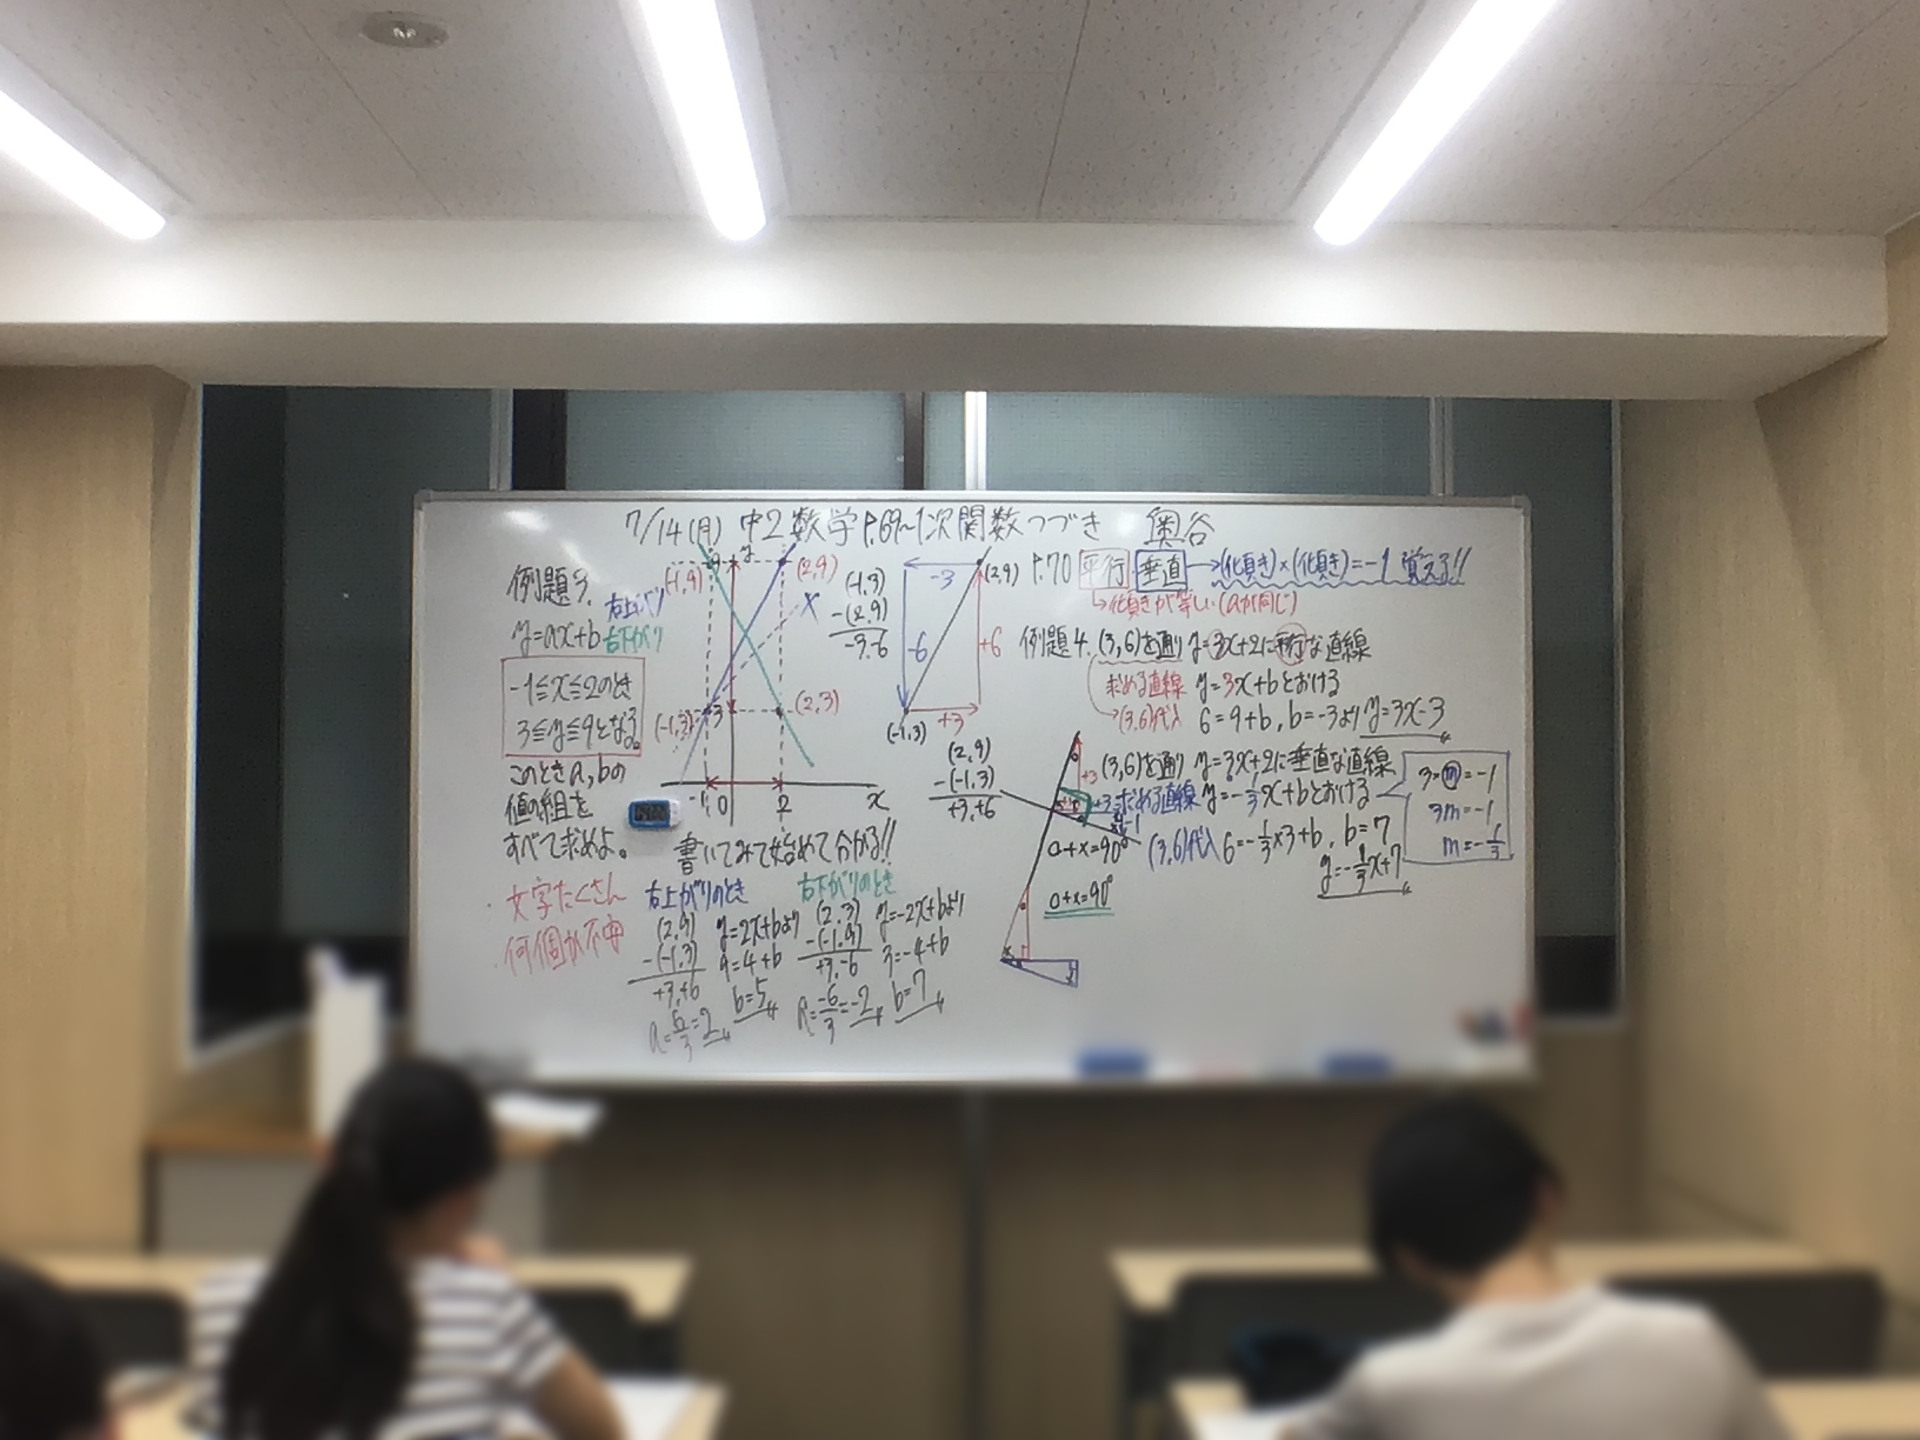 7/14(月) 中2数学 P.69~1次関数つづき 奥谷
例題3.
y=ax+b
右上がり
右下がり
-1≦x≦2のとき
3≦y≦9となる。
このときa,bの
値の組を
すべて求めよ。
・文字たくさん
・何個か不安
(-1,9)
9
y
(2,9)
x
(-1,3)
3
(2,3)
-1
0
2
x
書いてみて始めて分かる!!
右上がりのとき
(2,9)
-(-1,3)
+3,+6
a=6/3=2
y=2x+bより
9=4+b
b=5
右下がりのとき
(2,3)
-(-1,9)
+3,-6
a=-6/3=-2
y=-2x+bより
3=-4+b
b=7
(-1,3)
-(2,9)
-3,-6
-3
(2,9)
-6
+6
(-1,3)
+3
(2,9)
-(-1,3)
+3,+6
P.70 平行 垂直→(傾き)×(傾き)=-1 覚えろ!!
→傾きが等しい(aが同じ)
例題4. (3,6)を通り y=3x+2に平行な直線
求める直線 y=3x+bとおける
(3,6)代入 6=9+b, b=-3より y=3x-3
(3,6)を通り y=3x+2に垂直な直線
求める直線 y=-1/3x+bとおける
(3,6)代入 6=-1/3×3+b, b=7
y=-1/3x+7
3×m=-1
3m=-1
m=-1/3
+3
+3
-1
o+x=90°
o+x=90°